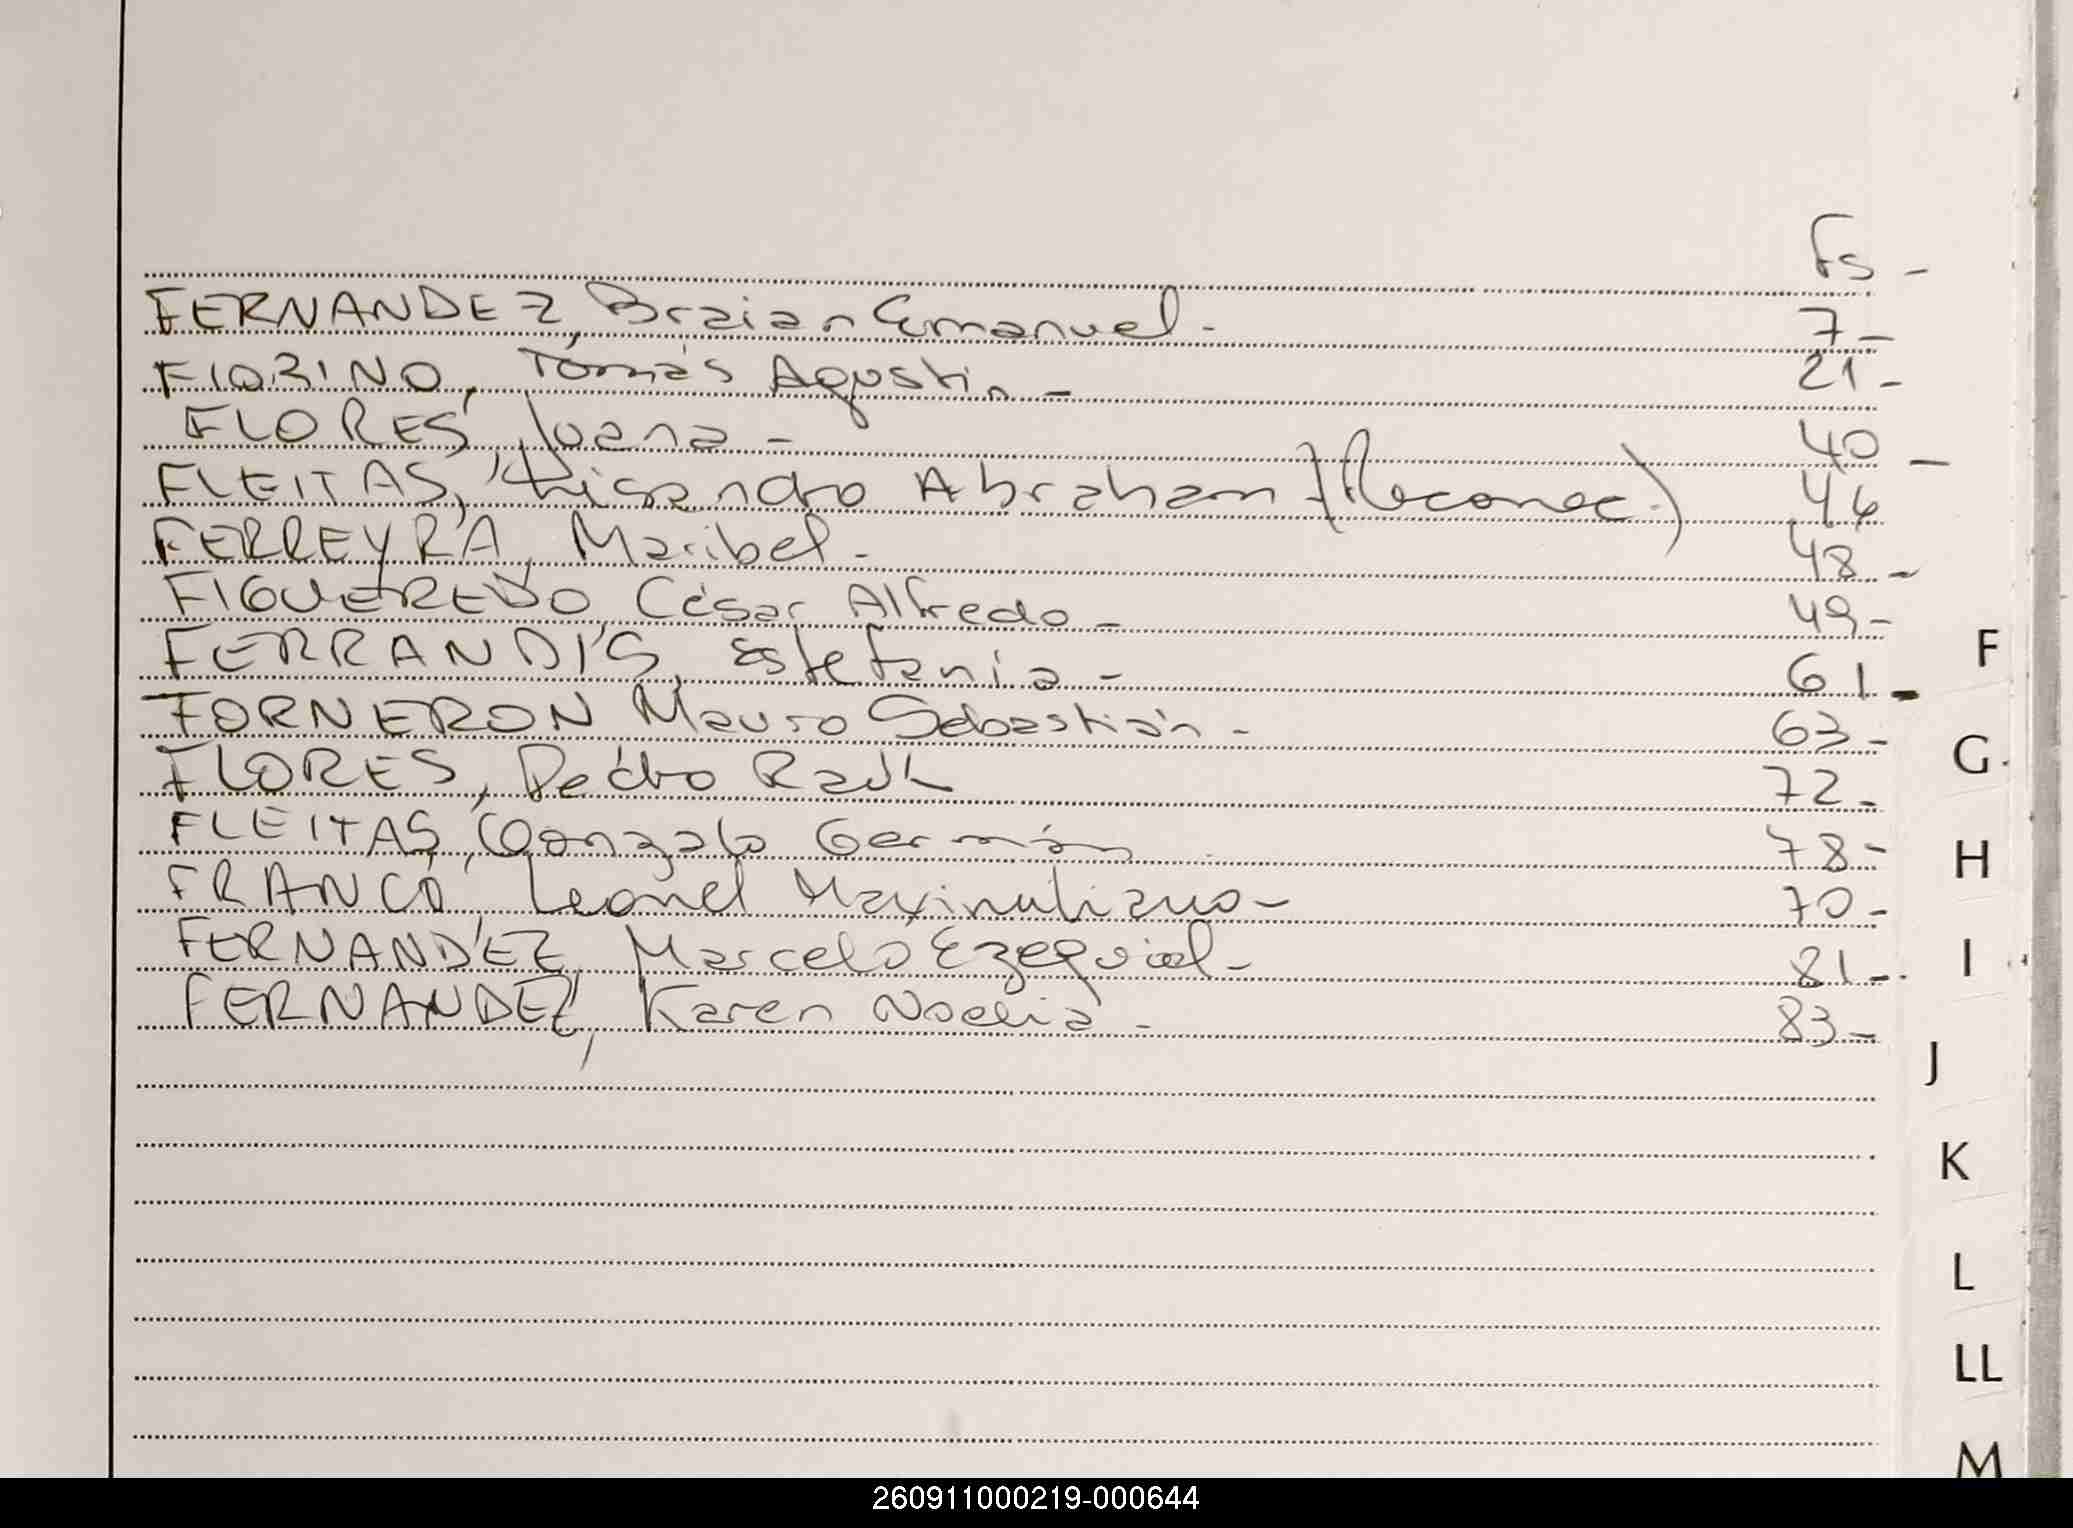 Fs -
FERNANDEZ, Braian Emanuel - 7 -
FIORINO, Tomás Agustin - 21 -
FLORES, Joana - 40 -
FLEITAS, Lisandro Abraham (Reconoc.) 44
FERREYRA, Maribel - 48 -
FIGUEREDO, César Alfredo - 49 -
FERRANDIS, Estefania - 61 -
FORNERON Mauro Sebastián - 63 -
FLORES, Pedro Raúl 72 -
FLEITAS, Gonzalo Germán 78 -
FRANCO, Leonel Maximiliano - 70 -
FERNANDEZ, Marcelo Ezequiel - 81 -
FERNANDEZ, Karen Noelia - 83 -
F
G
H
I
J
K
L
LL
M
260911000219-000644